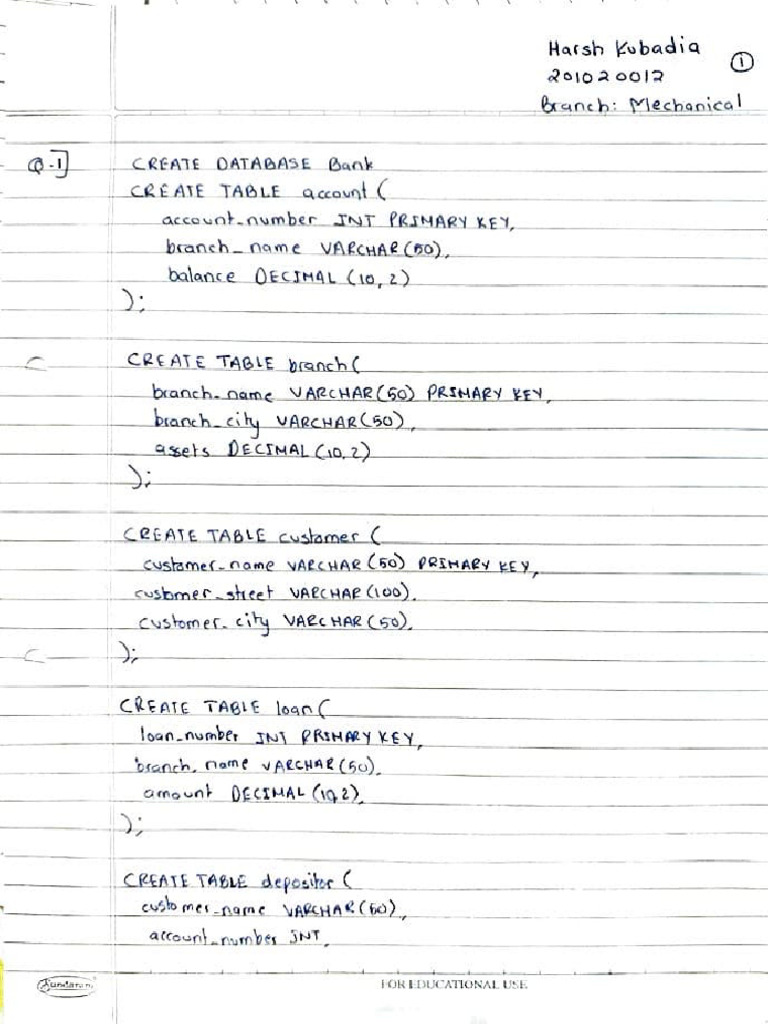 Harsh Kubadia
201020012
Branch: Mechanical
1
Q-1]
CREATE DATABASE Bank
CREATE TABLE account (
account_number INT PRIMARY KEY,
branch_name VARCHAR(50),
balance DECIMAL (10,2)
);
CREATE TABLE branch(
branch_name VARCHAR(50) PRIMARY KEY,
branch_city VARCHAR(50),
assets DECIMAL (10,2)
);
CREATE TABLE customer (
customer_name VARCHAR (50) PRIMARY KEY,
customer_street VARCHAR (100),
customer_city VARCHAR (50),
);
CREATE TABLE loan (
loan_number INT PRIMARY KEY,
branch_name VARCHAR(50),
amount DECIMAL (10,2),
);
CREATE TABLE depositor (
customer_name VARCHAR (50),
account_number INT,
Sundaram
FOR EDUCATIONAL USE